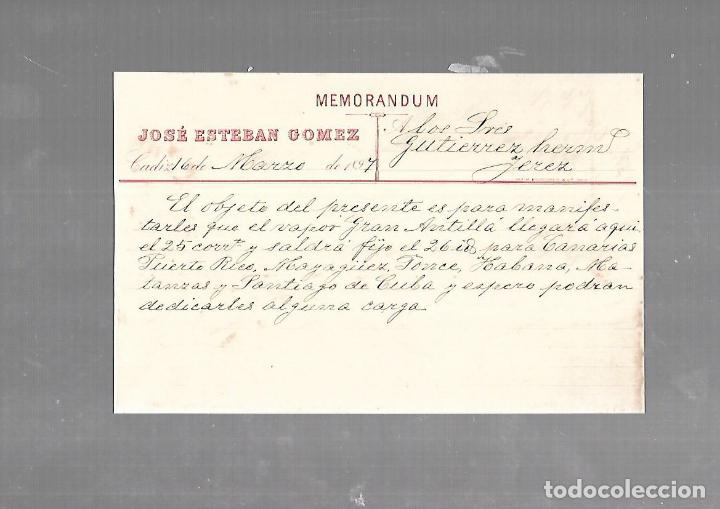 MEMORANDUM
JOSÉ ESTEBAN GOMEZ
Cadiz 16 de Marzo de 1897
A los Sres
Gutierrez hermos
Jerez
El objeto del presente es para manifes-
tarles que el vapor Gran Antilla llegará aqui
el 25 corrte y saldrá fijo el 26 id para Canarias
Puerto Rico, Mayagüez, Ponce, Habana, Ma-
tanzas y Santiago de Cuba y espero podran
dedicarles alguna carga
todocoleccion.net